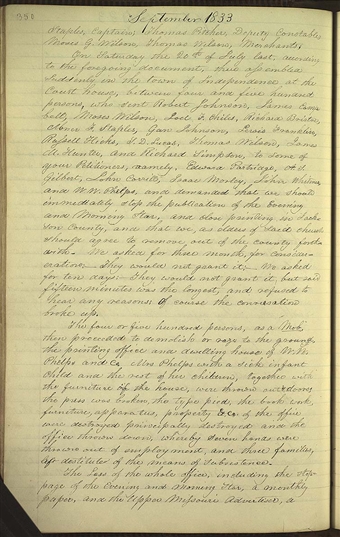 336
September 1833
Staples, Captain; Thomas Pitcher, Deputy Constable;
Moses G. Wilson, Thomas Wilson, Merchants;
On Saturday the 20th of July last, according
to the foregoing document, there assembled
suddenly in the town of Independence at the
Court house, between four and five hundred
persons, who sent Robert Johnson, James Camp-
bell, Moses Wilson, Joel F. Chiles, Richard Bristoe,
Abner F. Staples, Gan Johnson, Lewis Franklin,
Russell Hicks, S. D. Lucas, Thomas Wilson, James
M. Hunter, and Richard Simpson, to some of
your Petitioners, namely, Edward Partridge, A. S.
Gilbert, John Corrill, Isaac Morley, John Whitmer,
and W. W. Phelps, and demanded that we should
immediately stop the publication of the Evening
and Morning Star, and close printing in Jack-
son County, and that we, as elders of said church
should agree to remove out of the county forth
with. We asked for three months, for consider-
ation— They would not grant it— We asked
for ten days— They would not grant it, but said
fifteen minutes was the longest, and refused to
hear any reasons: Of course the conversation
broke up.
The four or five hundred persons, as a Mob,
then proceeded to demolish or raze to the ground,
the printing office and dwelling house of W. W.
Phelps and Co. Mrs Phelps with a sick infant
child and the rest of her children, together with
the furniture of the house, were thrown out doors,
the press was broken, the type pied, the book work,
furniture, apparatus, property &c. of the office
were destroyed principally destroyed and the
office thrown down, whereby seven hands were
thrown out of employment, and three families,
left destitute of the means of subsistence.
The Loss of the whole office, including the stop-
page of the Evening and Morning Star, a monthly
paper, and the Upper Missouri Advertiser, a